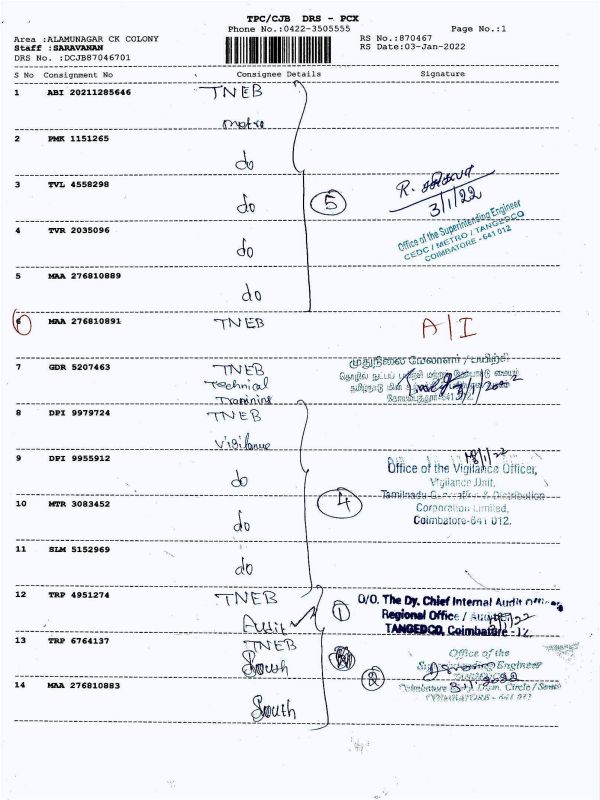 TPC/CJB DRS - PCX
Phone No.:0422-3505555 Page No.:1
Area :ALAMUNAGAR CK COLONY RS No.:870467
Staff :SARAVANAN RS Date:03-Jan-2022
DRS No. :DCJB87046701
S No Consignment No Consignee Details Signature
1 ABI 20211285646 TNEB
metro
2 PMK 1151265
do
3 TVL 4558298
do
R.
3/1/22
5
4 TVR 2035096
do
Office of the Superintending Engineer
CEDC / METRO / TANGEDCO
COIMBATORE - 641 012
5 MAA 276810889
do
6 MAA 276810891 TNEB A/I
7 GDR 5207463 TNEB
Technical
Training
முதுநிலை மேலாளர் / பயிற்சி
8 DPI 9979724 TNEB
Vigilance
9 DPI 9955912
do
Office of the Vigilance Officer,
Vigilance Unit,
Tamilnadu Generation & Distribution
Corporation Limited,
Coimbatore-641 012.
4
10 MTR 3083452
do
11 SLM 5152969
do
12 TRP 4951274 TNEB
Audit
1
O/O. The Dy. Chief Internal Audit Officer
Regional Office /
TANGEDCO, Coimbatore - 12
13 TRP 6764137 TNEB
South
2
Office of the
Superintending Engineer
14 MAA 276810883
South
3/1/2022